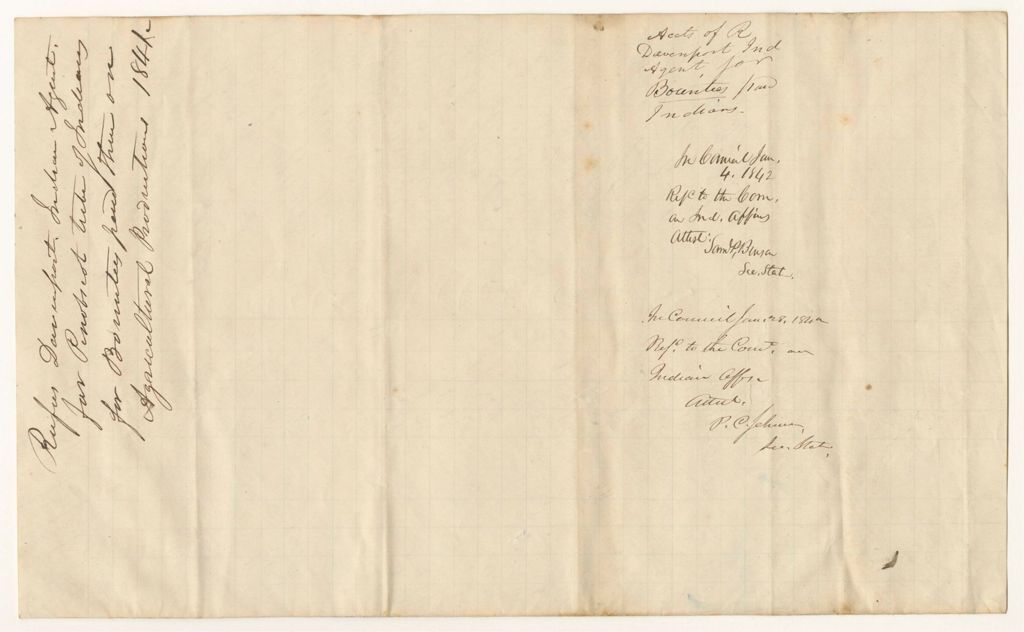 Rufus Davenport, Indian Agent,
for Penobscot tribe of Indians
for Bounties paid them on
Agricultural Productions 1841.
Accts of R
Davenport Ind
Agent for
Bounties paid
Indians.
In Council Jan.
4. 1842
Refd to the Com.
on Ind. Affairs
Attest:
Saml P. Benson
Sec. Stat.
In Council Jan. 28. 1842
Refd. to the Comt. on
Indian Affrs
Attest.
P. C. Johnson,
Sec. State,